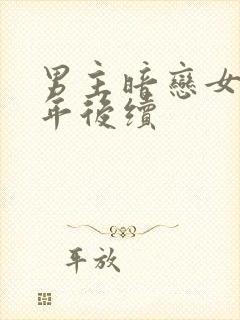 男主暗戀女
年後續
平放